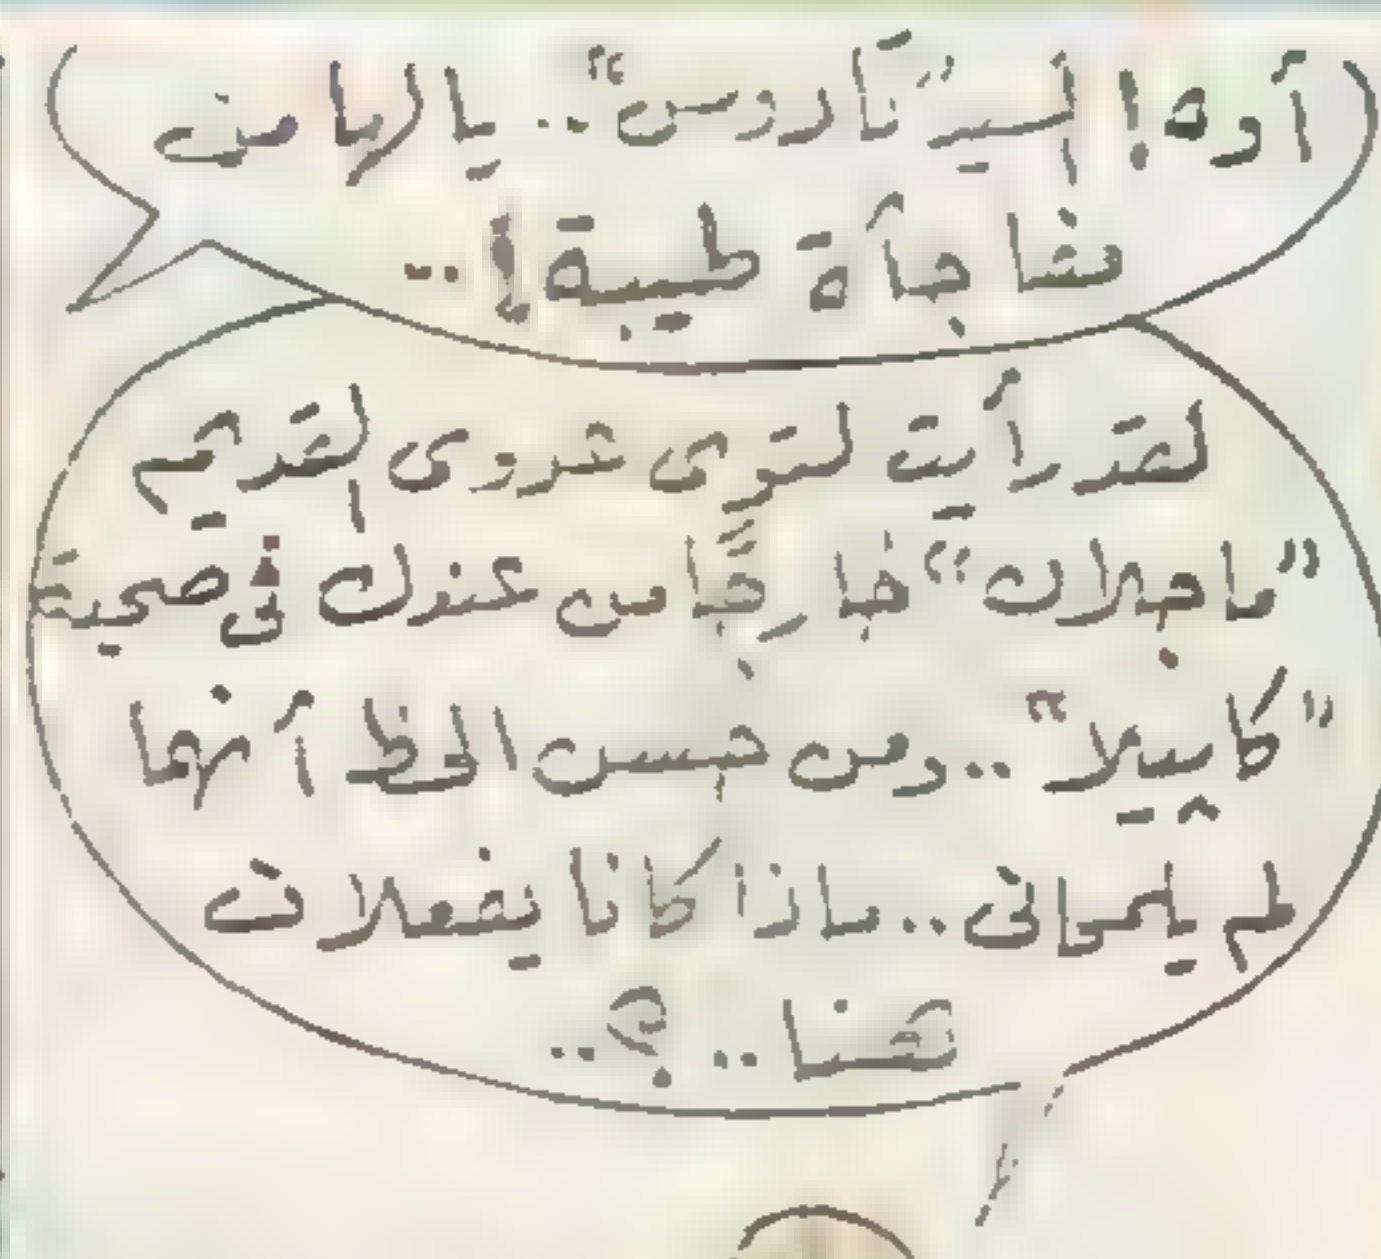 أوه! السيد "تادروس".. يالها من
مفاجأة طيبة!..
لقد رأيت لتوِّى عدوى القديم
"ماجلان" خارجًا من عندك فى صحبة
"كاميلا".. ومن حسن الحظ أنهما
لم يلمحانى.. ماذا كانا يفعلان
هنا..؟..